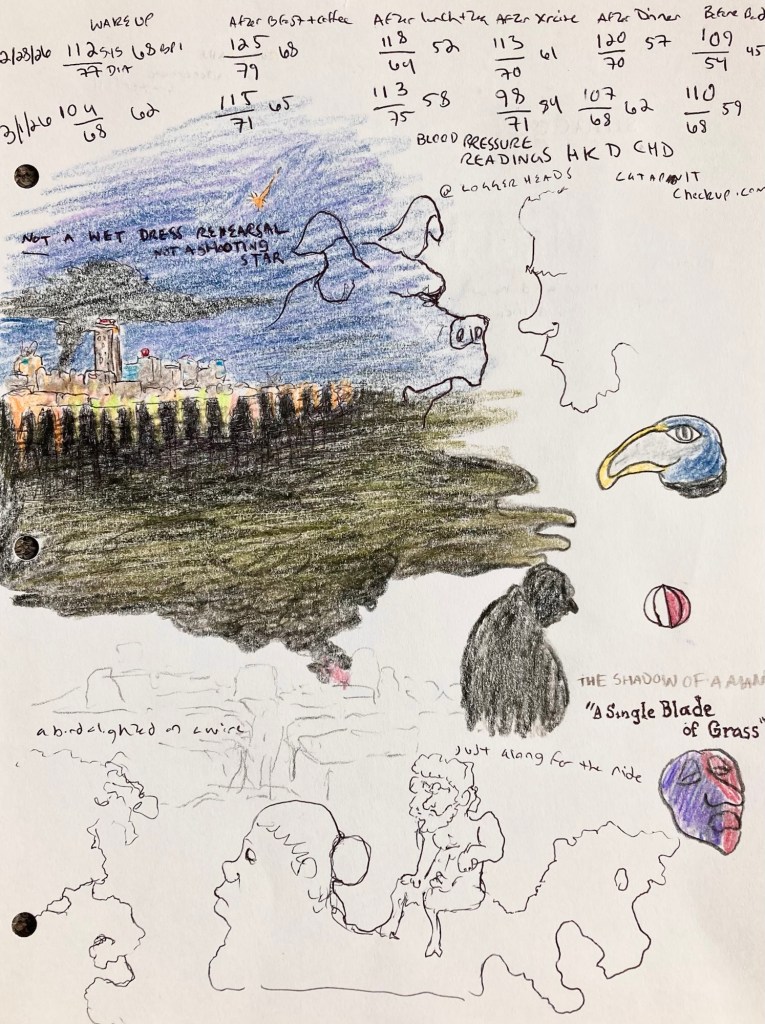 WAKE UP AFTER BFAST + COFFEE AFTER LUNCH + TEA AFTER XRCISE AFTER DINNER BEFORE BED
2/28/26 112 SYS 68 BPM 125 68 118 52 113 61 120 57 109 45
77 DIA 79 64 70 70 54
3/1/26 104 62 115 65 113 58 98 84 107 62 110 59
68 71 75 71 68 68
BLOOD PRESSURE
READINGS HKD CHD
@ LOGGERHEADS
CHECKUP.COM
NOT A WET DRESS REHEARSAL
NOT A SHOOTING
STAR
THE SHADOW OF A MAN
"A Single Blade
of Grass"
a bird alighted on a wire
Just along for the ride